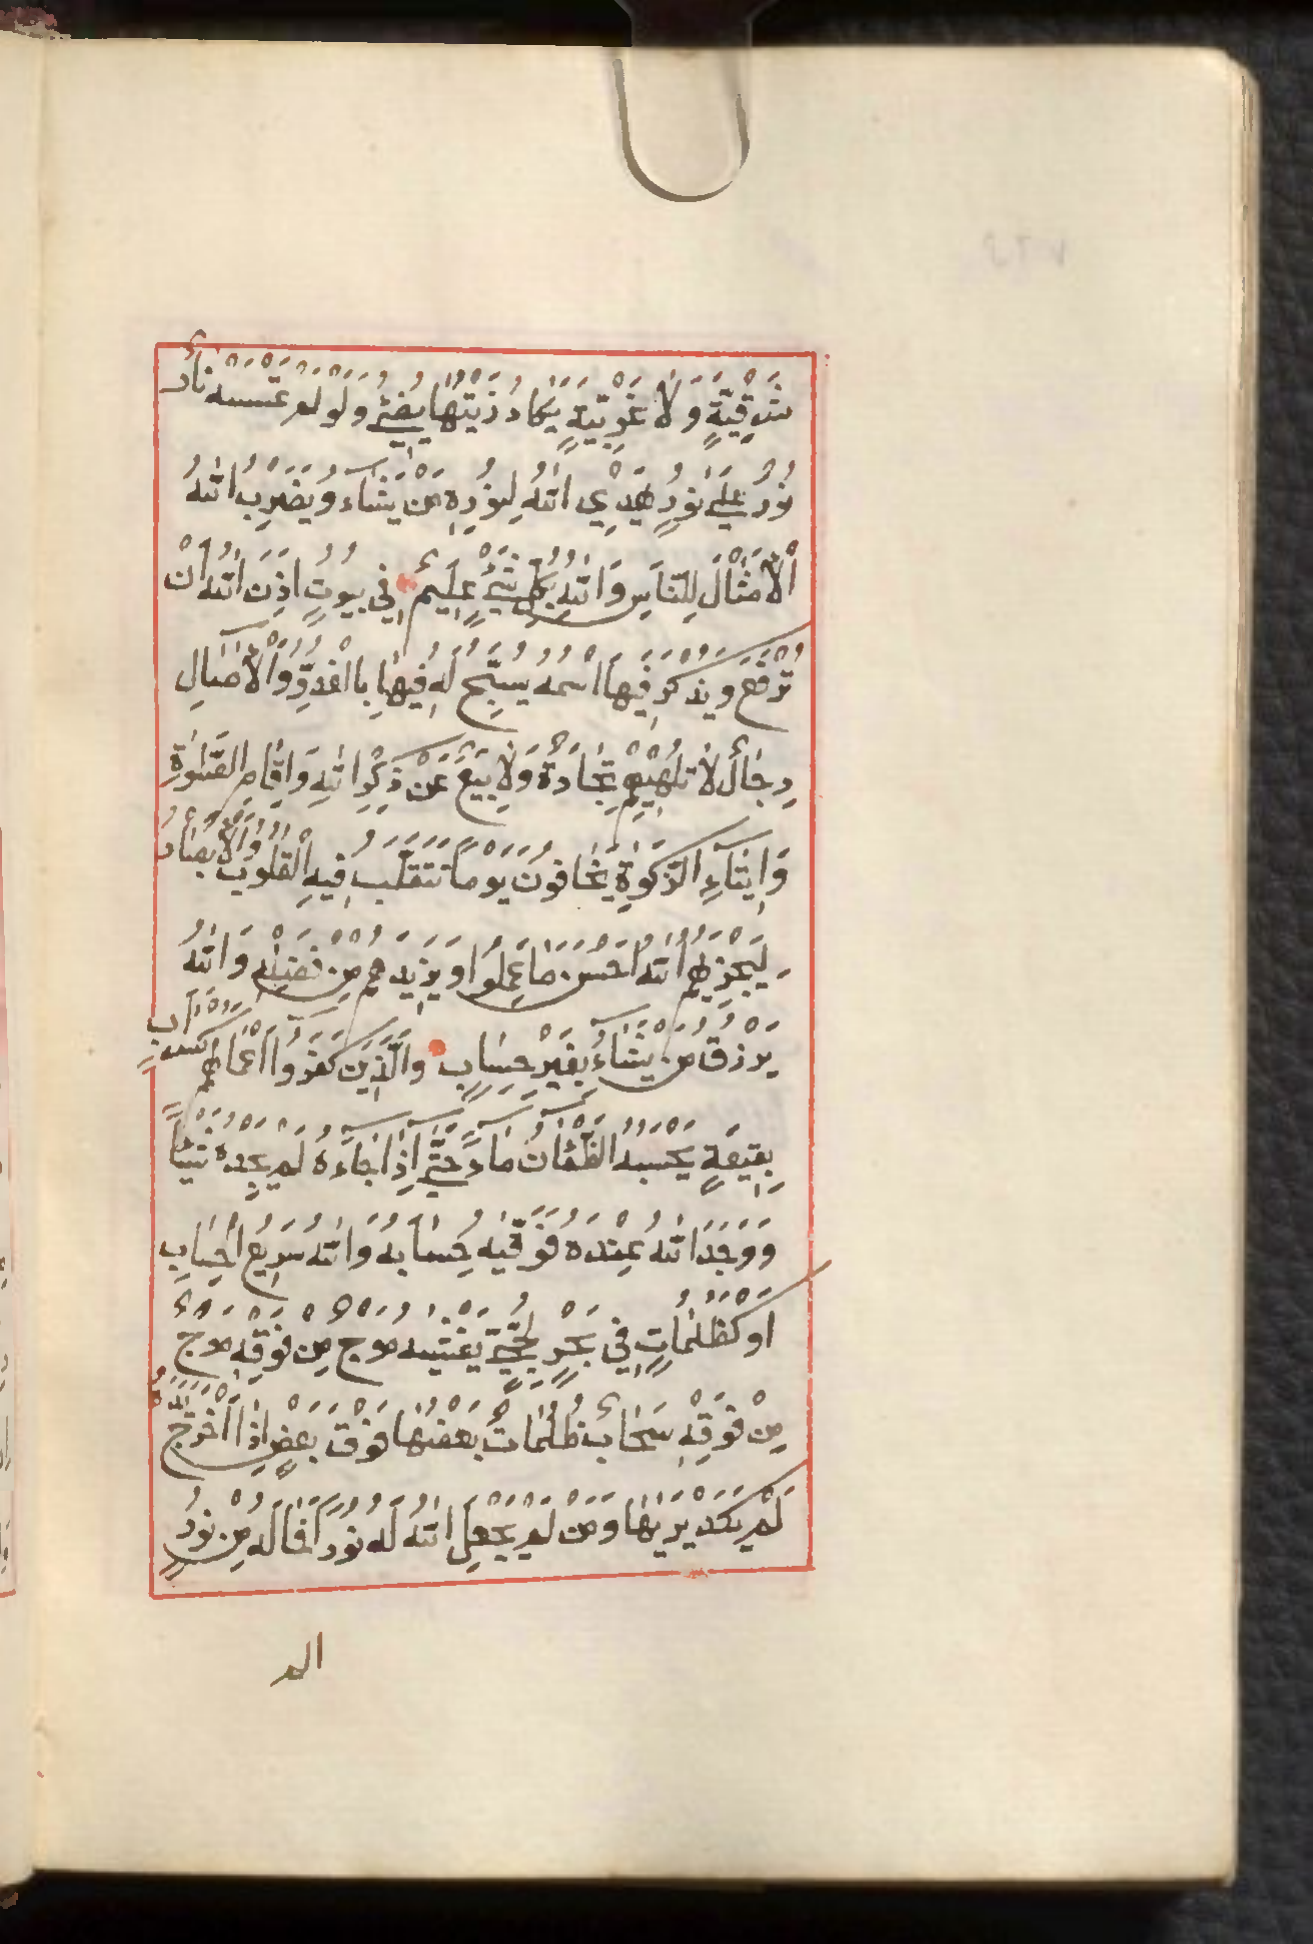 شَرْقِيَّةٍ وَلَا غَرْبِيَّةٍ يَكَادُ زَيْتُهَا يُضِيۤءُ وَلَوْ لَمْ تَمْسَسْهُ نَارٌ
نُورٌ عَلَى نُورٍ يَهْدِي اللّٰهُ لِنُورِهِ مَنْ يَشَآءُ وَيَضْرِبُ اللّٰهُ
الْأَمْثَالَ لِلنَّاسِ وَاللّٰهُ بِكُلِّ شَيْءٍ عَلِيمٌ فِي بُيُوتٍ اَذِنَ اللّٰهُ اَنْ
تُرْفَعَ وَيُذْكَرَ فِيهَا اسْمُهُ يُسَبِّحُ لَهُ فِيهَا بِالْغُدُوِّ وَالْاٰصَالِ
رِجَالٌ لَا تُلْهِيهِمْ تِجَارَةٌ وَلَا بَيْعٌ عَنْ ذِكْرِ اللّٰهِ وَاِقَامِ الصَّلٰوةِ
وَاِيتَآءِ الزَّكٰوةِ يَخَافُونَ يَوْمًا تَتَقَلَّبُ فِيهِ الْقُلُوبُ وَالْاَبْصَارُ
لِيَجْزِيَهُمُ اللّٰهُ اَحْسَنَ مَا عَمِلُوا وَيَزِيدَهُمْ مِنْ فَضْلِهِ وَاللّٰهُ
يَرْزُقُ مَنْ يَشَآءُ بِغَيْرِ حِسَابٍ وَالَّذِينَ كَفَرُوا اَعْمَالُهُمْ كَسَرَابٍ
بِقِيعَةٍ يَحْسَبُهُ الظَّمْاٰنُ مَآءً حَتّٰى اِذَا جَآءَهُ لَمْ يَجِدْهُ شَيْئًا
وَوَجَدَ اللّٰهَ عِنْدَهُ فَوَفّٰيهُ حِسَابَهُ وَاللّٰهُ سَرِيعُ الْحِسَابِ
اَوْ كَظُلُمَاتٍ فِي بَحْرٍ لُجِّيٍّ يَغْشٰيهُ مَوْجٌ مِنْ فَوْقِهِ مَوْجٌ
مِنْ فَوْقِهِ سَحَابٌ ظُلُمَاتٌ بَعْضُهَا فَوْقَ بَعْضٍ اِذَا اَخْرَجَ يَدَهُ
لَمْ يَكَدْ يَرٰيهَا وَمَنْ لَمْ يَجْعَلِ اللّٰهُ لَهُ نُورًا فَمَا لَهُ مِنْ نُورٍ
الم